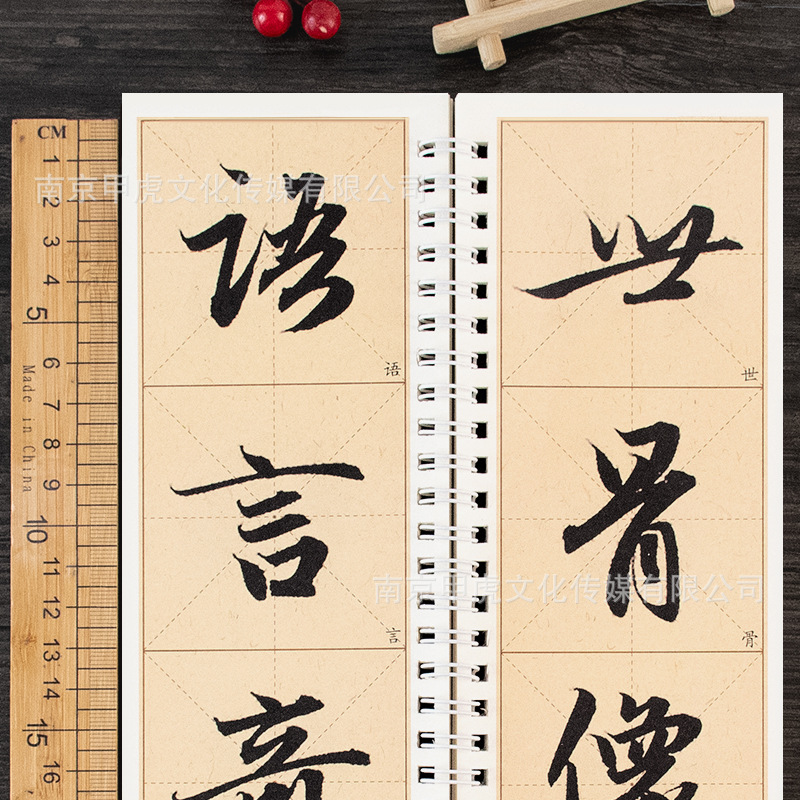 CM
1
2
3
4
5
6
7
8
9
10
11
12
13
14
15
16
Made in China
南京甲虎文化传媒有限公司
語
语
言
言
世
世
骨
骨
南京甲虎文化传媒有限公司